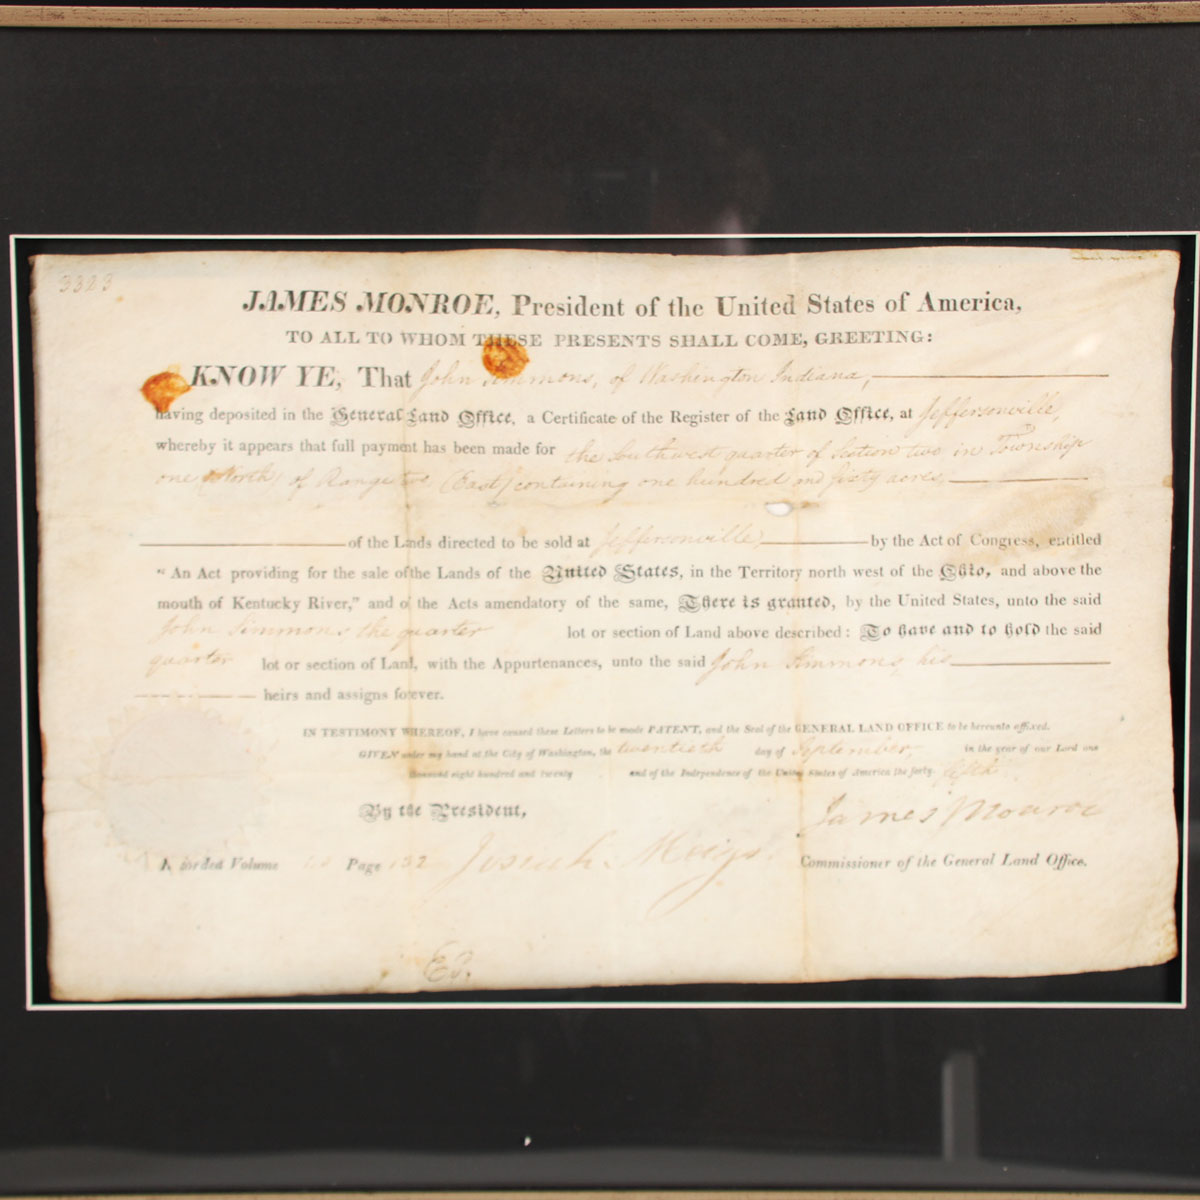 3323
JAMES MONROE, President of the United States of America,
TO ALL TO WHOM THESE PRESENTS SHALL COME, GREETING:
KNOW YE, That John Simmons, of Washington Indiana,
having deposited in the General Land Office, a Certificate of the Register of the Land Office, at Jeffersonville,
whereby it appears that full payment has been made for the Southwest quarter of Section two in Township
one (North) of Range two (East) containing one hundred and sixty acres,
of the Lands directed to be sold at Jeffersonville, by the Act of Congress, entitled
"An Act providing for the sale of the Lands of the United States, in the Territory north west of the Ohio, and above the
mouth of Kentucky River," and of the Acts amendatory of the same, There is granted, by the United States, unto the said
John Simmons the quarter lot or section of Land above described: To have and to hold the said
quarter lot or section of Land, with the Appurtenances, unto the said John Simmons, his
heirs and assigns forever.
IN TESTIMONY WHEREOF, I have caused these Letters to be made PATENT, and the Seal of the GENERAL LAND OFFICE to be hereunto affixed.
GIVEN under my hand at the City of Washington, the twentieth day of September in the year of our Lord one
thousand eight hundred and twenty and of the Independence of the United States of America the forty-fifth
By the President, James Monroe
Recorded Volume Page 132 Josiah Meigs Commissioner of the General Land Office.